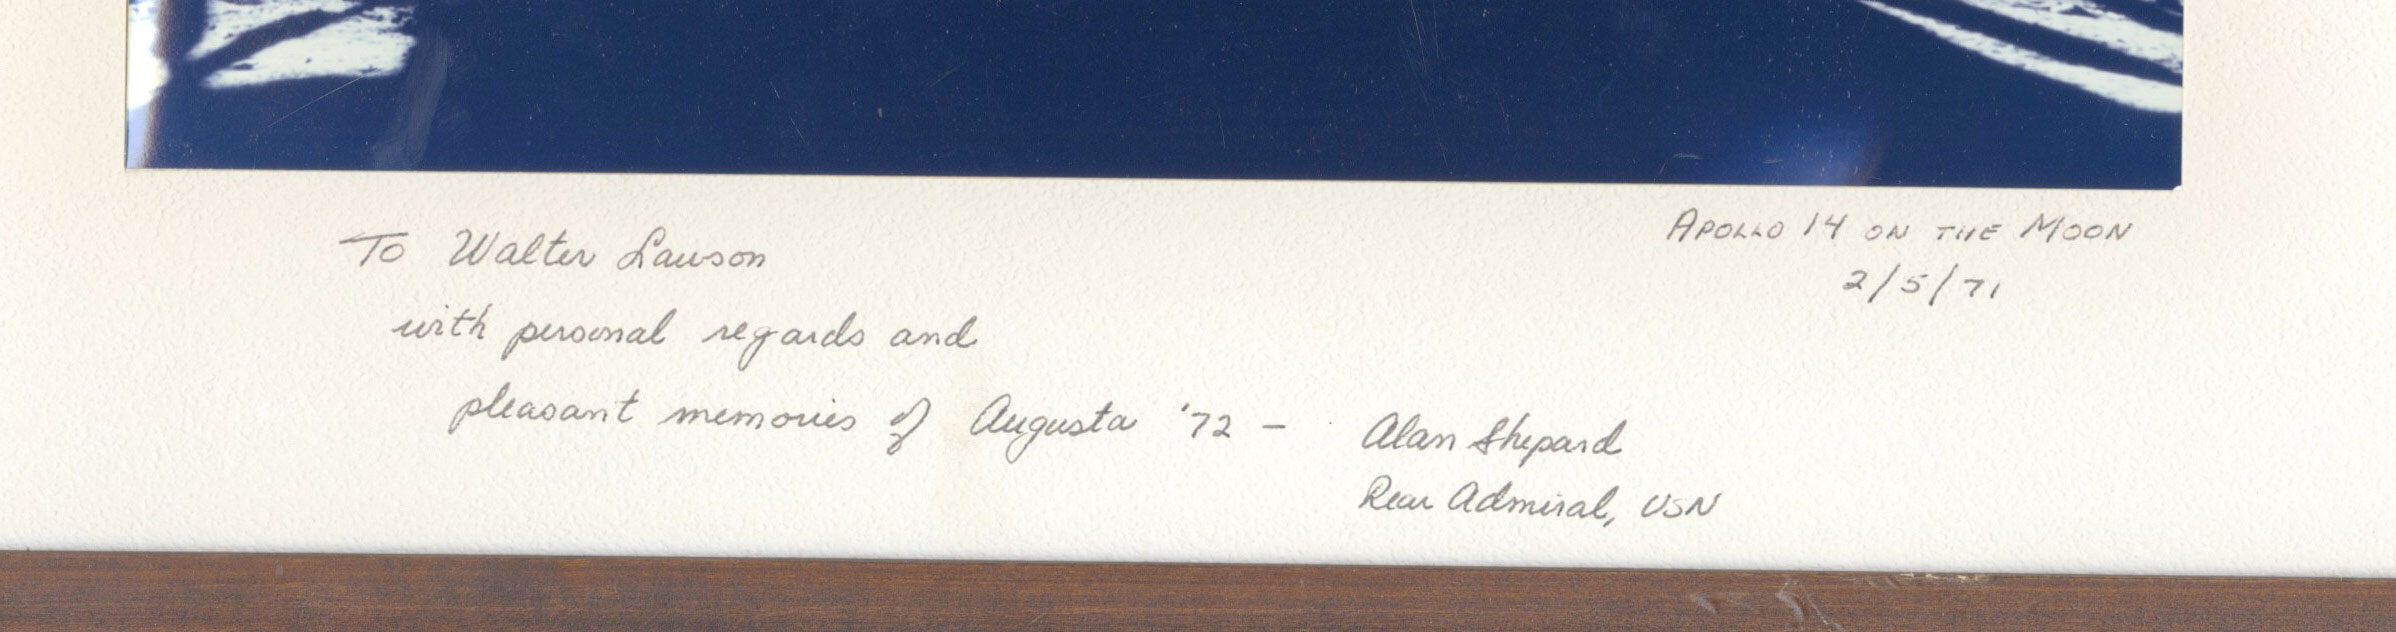 To Walter Lawson
with personal regards and
pleasant memories of Augusta '72 -
Alan Shepard
Rear Admiral, USN
APOLLO 14 ON THE MOON
2/5/71